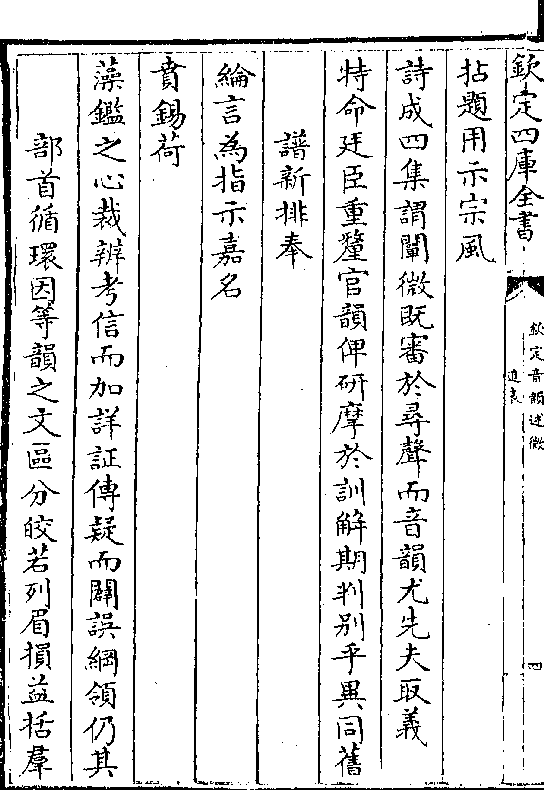 欽定四庫全書
欽定音韻述微
進表
四
拈題用示宗風
詩成四集謂闡微既審於尋聲而音韻尤先夫取義
特命廷臣重釐官韻俾研摩於訓解期判别乎異同舊
譜新排奉
綸言為指示嘉名
賁錫荷
藻鑑之心裁辨考信而加詳証傳疑而闢誤綱領仍其
部首循環因等韻之文區分皎若列眉損益括羣